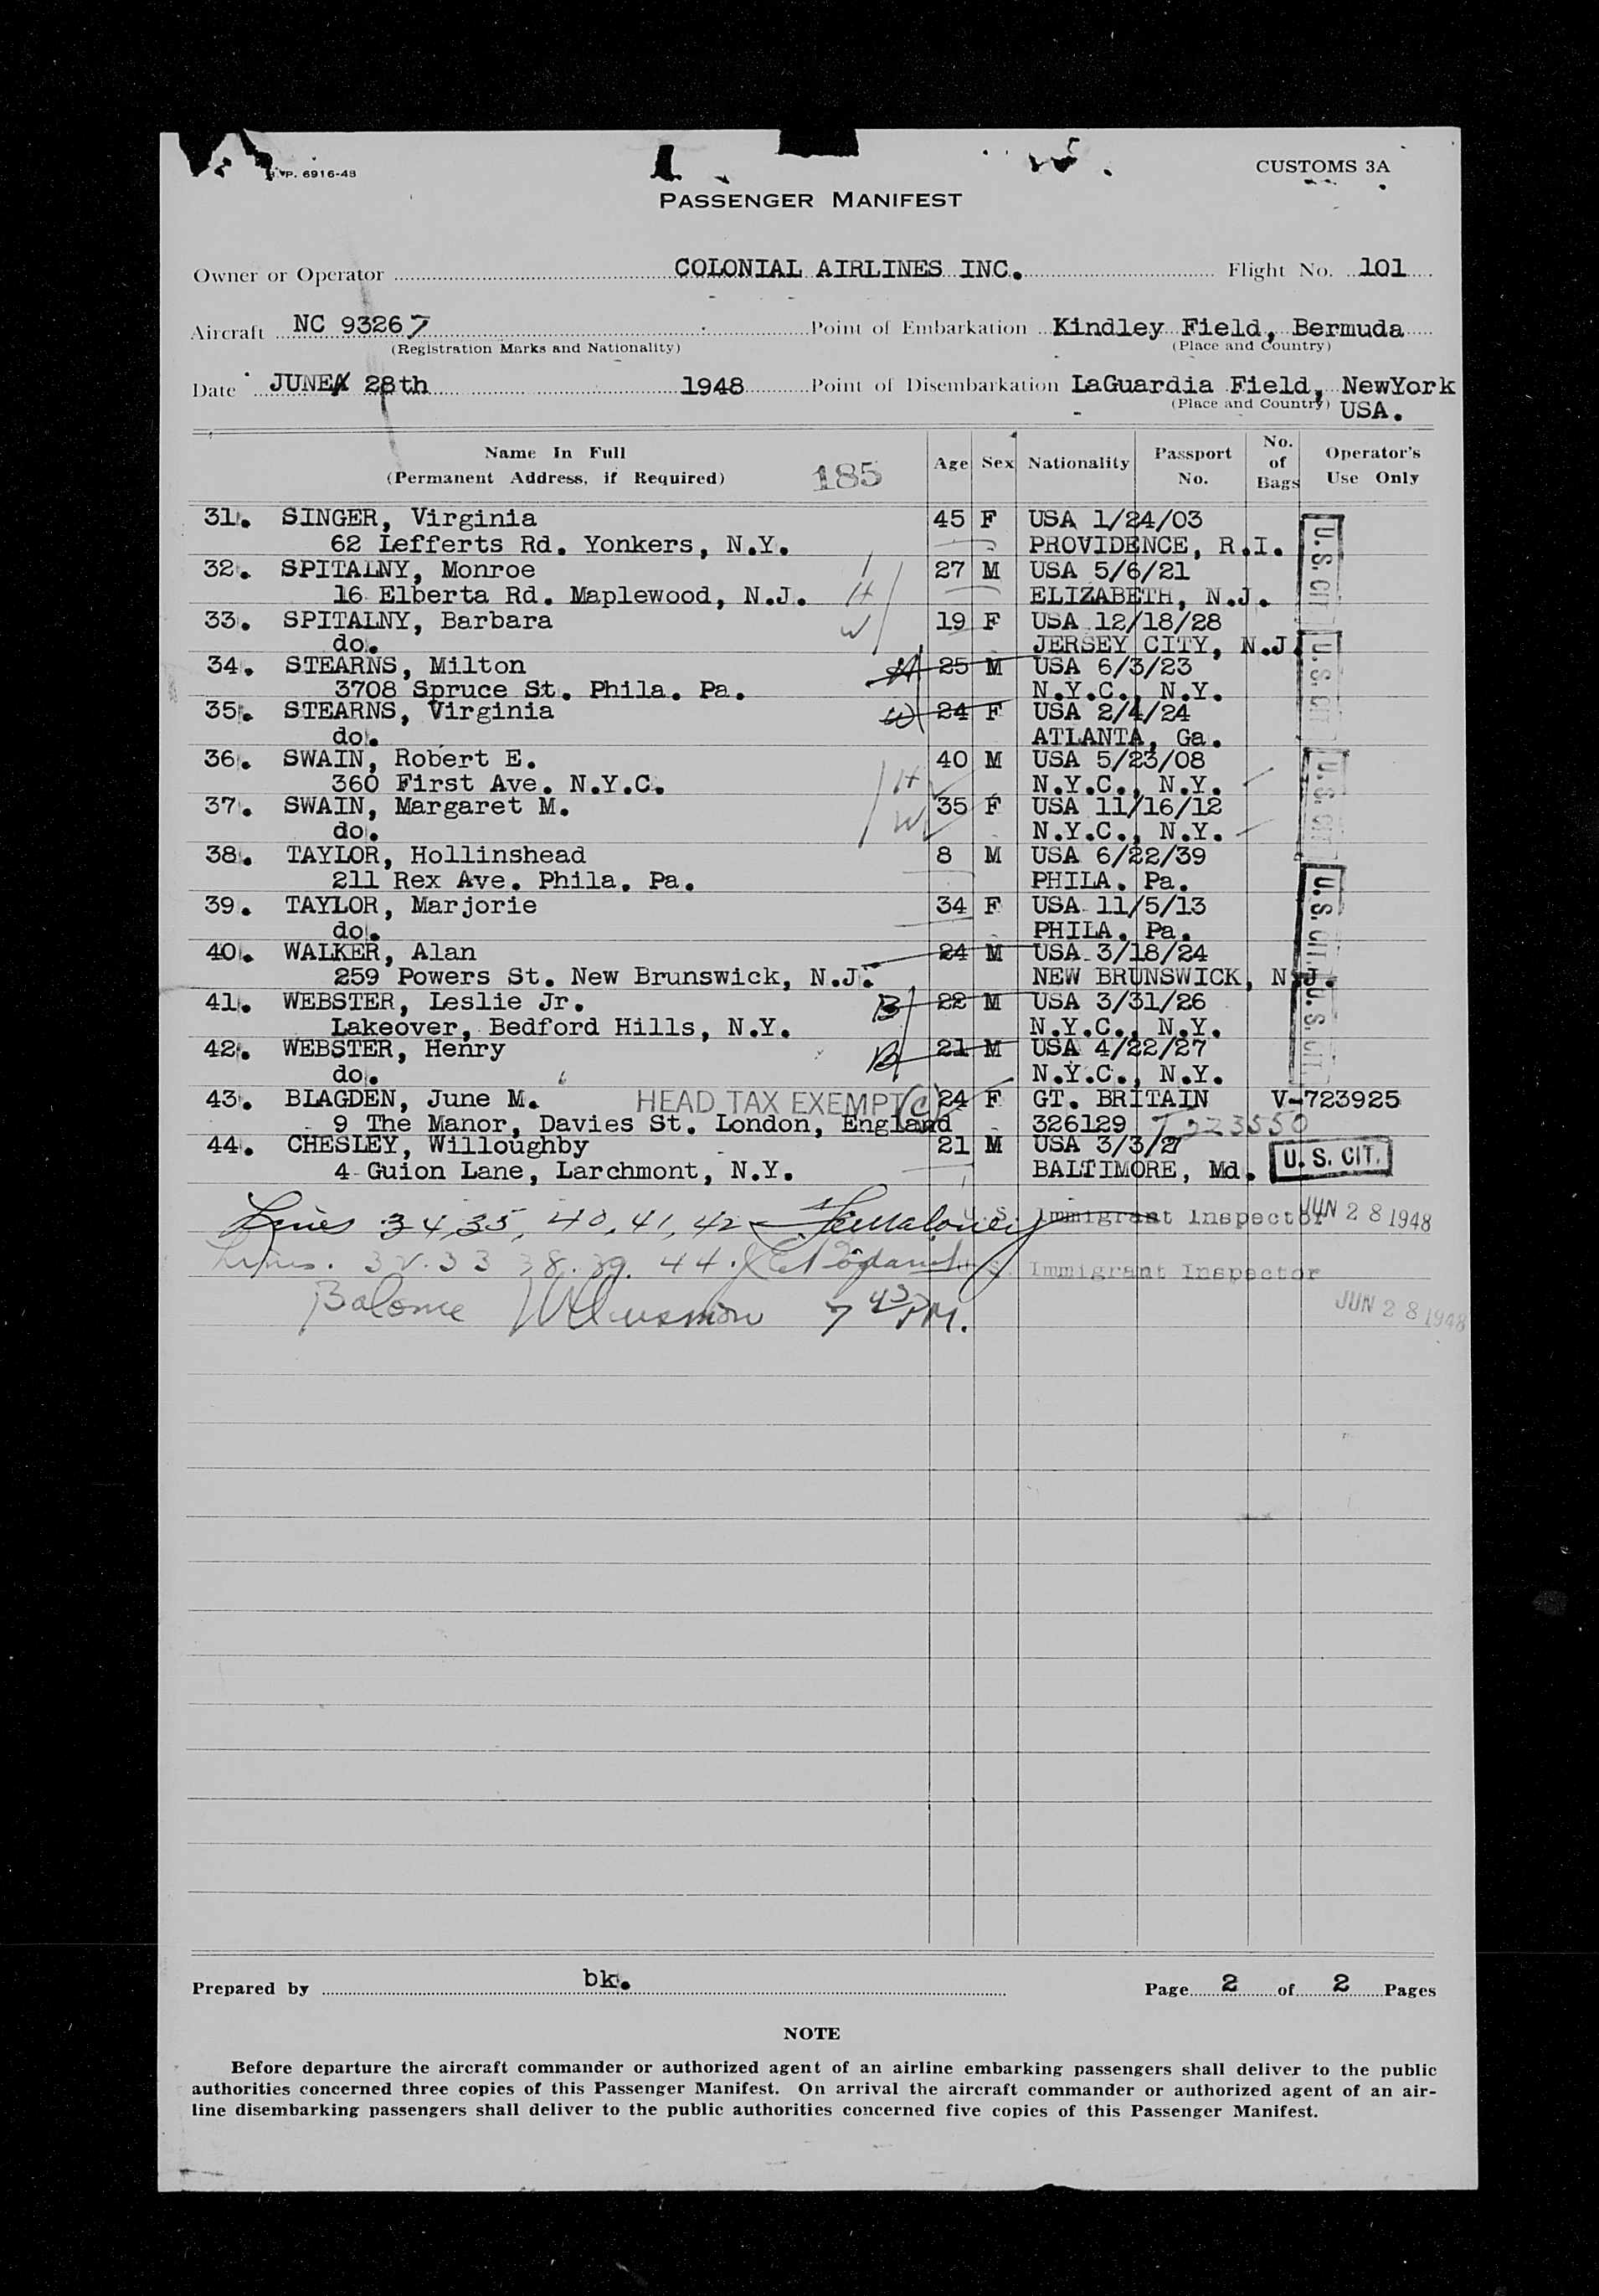 P. 6916-48
CUSTOMS 3A
PASSENGER MANIFEST
Owner or Operator COLONIAL AIRLINES INC. Flight No. 101
Aircraft NC 93267 Point of Embarkation Kindley Field, Bermuda
(Registration Marks and Nationality) (Place and Country)
Date JUNE 28th 1948 Point of Disembarkation LaGuardia Field, NewYork
(Place and Country) USA.
Name In Full (Permanent Address, if Required) 185 Age Sex Nationality Passport No. No. of Bags Operator's Use Only
31. SINGER, Virginia 45 F USA 1/24/03
62 Lefferts Rd. Yonkers, N.Y. PROVIDENCE, R.I. U.S. CIT
32. SPITALNY, Monroe 1 27 M USA 5/6/21
16 Elberta Rd. Maplewood, N.J. H ELIZABETH, N.J.
33. SPITALNY, Barbara W 19 F USA 12/18/28
do. JERSEY CITY, N.J. U.S. CIT
34. STEARNS, Milton H 25 M USA 6/3/23
3708 Spruce St. Phila. Pa. N.Y.C., N.Y.
35. STEARNS, Virginia W 24 F USA 2/4/24
do. ATLANTA, Ga.
36. SWAIN, Robert E. 40 M USA 5/23/08
360 First Ave. N.Y.C. H N.Y.C., N.Y. U.S. CIT
37. SWAIN, Margaret M. W 35 F USA 11/16/12
do. N.Y.C., N.Y.
38. TAYLOR, Hollinshead 8 M USA 6/22/39
211 Rex Ave. Phila. Pa. PHILA. Pa. U.S. CIT.
39. TAYLOR, Marjorie 34 F USA 11/5/13
do. PHILA. Pa.
40. WALKER, Alan 24 M USA 3/18/24
259 Powers St. New Brunswick, N.J. NEW BRUNSWICK, N.J.
41. WEBSTER, Leslie Jr. B 22 M USA 3/31/26 U.S. CIT
Lakeover, Bedford Hills, N.Y. N.Y.C., N.Y.
42. WEBSTER, Henry B 21 M USA 4/22/27
do. N.Y.C., N.Y.
43. BLAGDEN, June M. HEAD TAX EXEMPT (C) 24 F GT. BRITAIN V-723925
9 The Manor, Davies St. London, England 326129
44. CHESLEY, Willoughby 21 M USA 3/3/27
4 Guion Lane, Larchmont, N.Y. BALTIMORE, Md. U. S. CIT.
Lines 34, 35, 40, 41, 42 U.S. Immigrant Inspector JUN 28 1948
Lines. 32. 33 38. 39. 44. U.S. Immigrant Inspector
7 45 PM. JUN 28 1948
Prepared by bk. Page 2 of 2 Pages
NOTE
Before departure the aircraft commander or authorized agent of an airline embarking passengers shall deliver to the public
authorities concerned three copies of this Passenger Manifest. On arrival the aircraft commander or authorized agent of an air-
line disembarking passengers shall deliver to the public authorities concerned five copies of this Passenger Manifest.